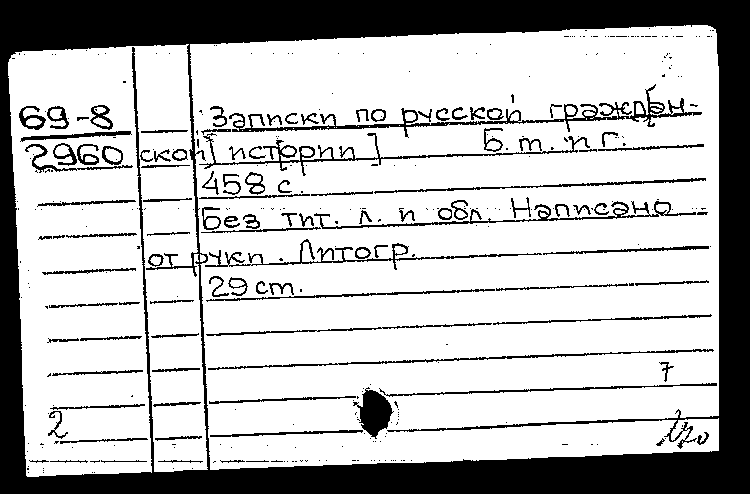 69-8
2960
Записки по русской гражд[ан-
ской] ист[ории] Б. т. и г.
458 с.
Без тит. л. и обл. Написано
от руки. Литогр.
29 cm.
7
2